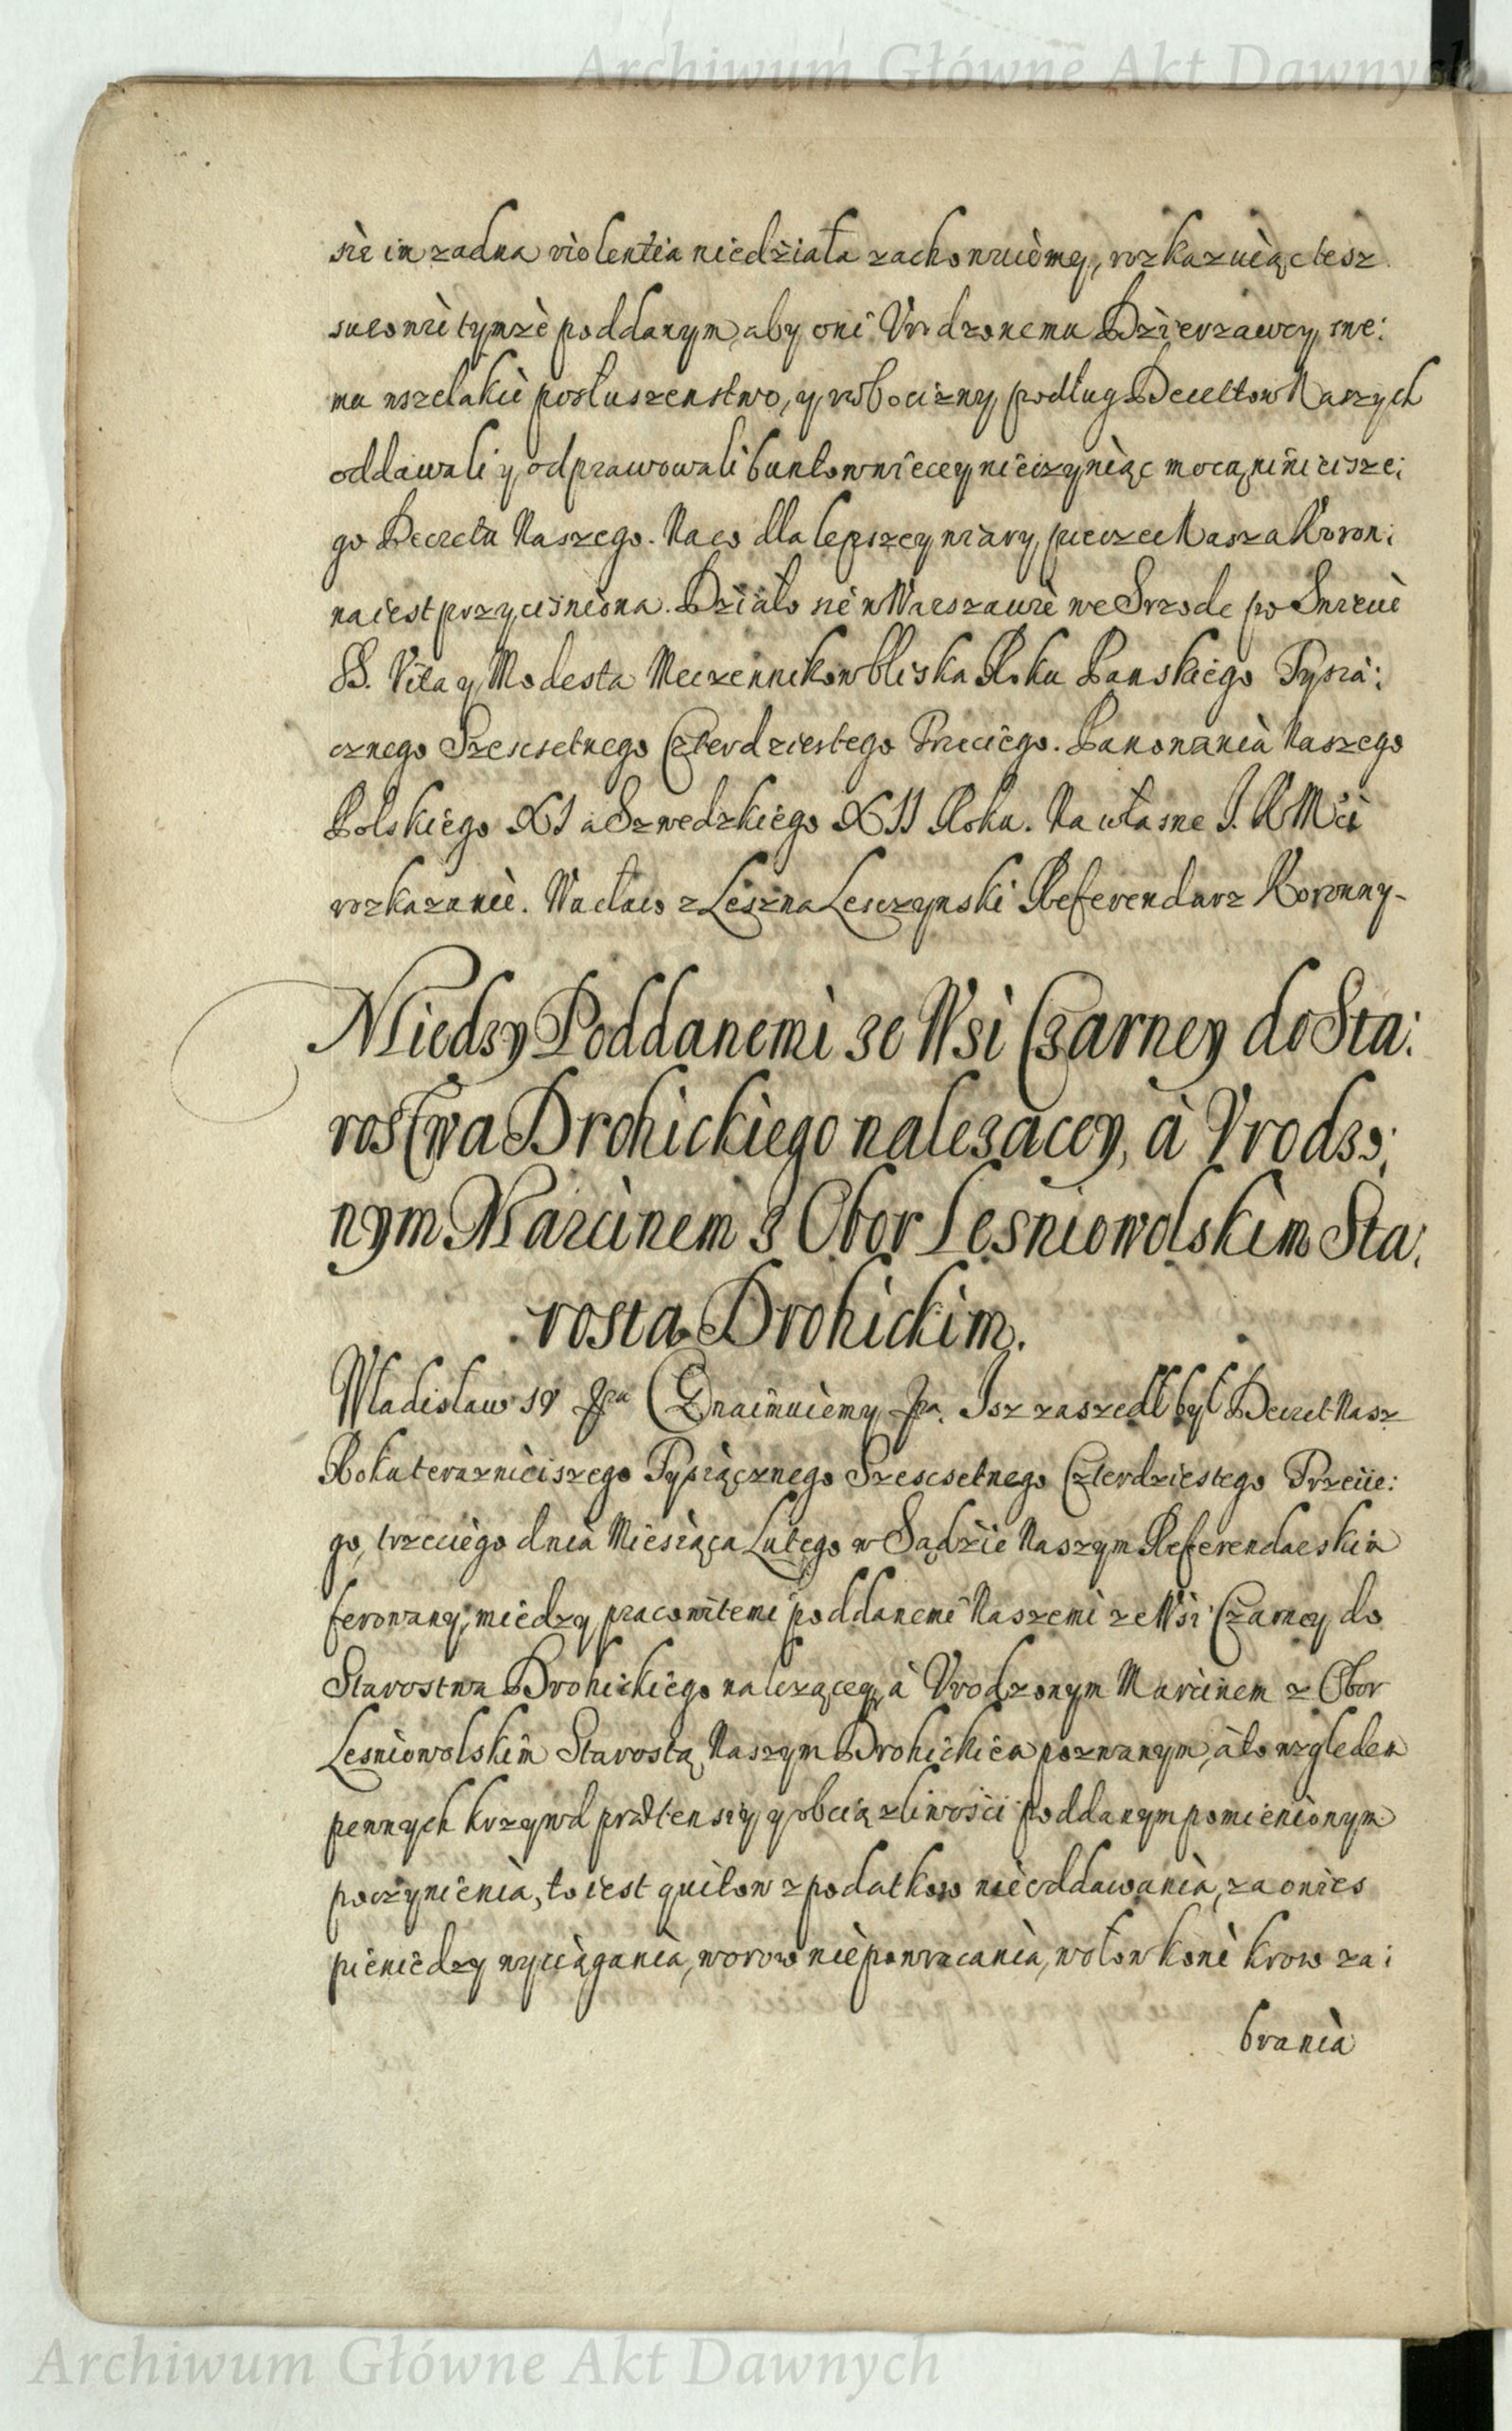 Archiwum Główne Akt Dawnych
się im zadna violentia niedziała zachowuiemy, rozkazuiąc tesz
surowie tymze poddanym, aby oni Vrodzonemu Dzierzawcy swe:
mu wszelakie posłuszenstwo, y robocizny podług Decretow Naszych
oddawali y odprawowali buntow wiecey nieczyniąc mocą ninieisze:
go Decretu Naszego. Na co dla lepszey wiary, pieczec Nasza Koron:
na iest przycisniona. Działo sie w Warszawie we Srzode po Swiecie
SS. Vita y Modesta Meczennikow bliska Roku Panskiego Tysia:
cznego Szescsetnego Czterdziestego Trzeciego. Panowania Naszego
Polskiego XI a Szwedzkiego XII Roku. Na własne J. K Mci
rozkazanie. Wacław z Leszna Lesczynski Referendarz Koronny-
Miedzy Poddanemi ze Wsi Czarney do Sta:
rostwa Drohickiego nalezacey, à Vrodzo:
nym Marcinem z Obor Lesniowolskim Sta:
rosta Drohickim.
Władisław IV &c Oznaimuiemy &c. Isz zaszedł był Decret Nasz
Roku teraznieiszego Tysiącznego Szescsetnego Czterdziestego Trzecie:
go, trzeciego dnia Miesiąca Lutego w Sądzie Naszym Referendarskim
ferowany, miedzy pracowitemi poddanemi Naszemi ze Wsi Czarney do
Starostwa Drohickiego nalezącey, à Vrodzonym Marcinem z Obor
Lesniowolskim Starostą Naszym Drohickiem pozwanym, à to wzgledem
pewnych krzywd prætensiy y obciązliwosci poddanym pomienionym
poczynienia, to iest quitow z podatkow nieoddawania, za owies
pieniedzy wyciągania, worow niepowracania, wołow koni krow za:
brania
Archiwum Główne Akt Dawnych